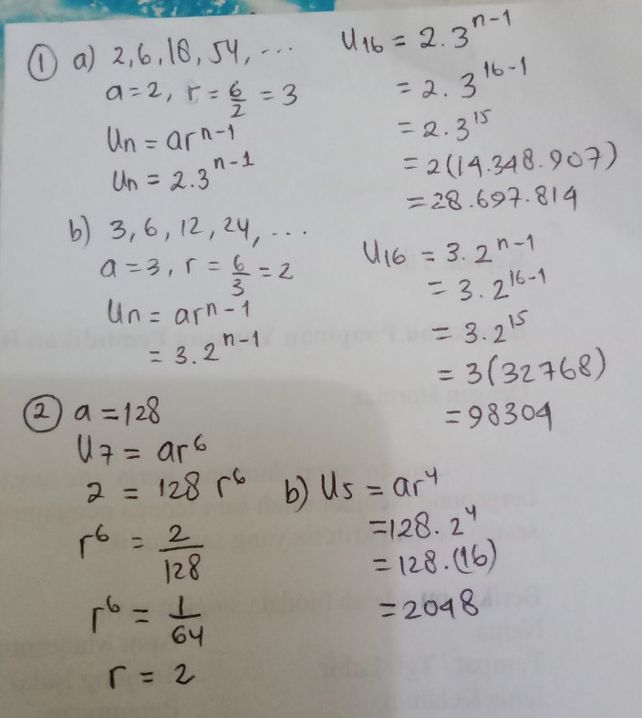 ① a) 2, 6, 18, 54, ...
a = 2, r = 6/2 = 3
Un = ar^n-1
Un = 2.3^n-1
U16 = 2.3^n-1
= 2.3^16-1
= 2.3^15
= 2(14.348.907)
= 28.697.814
b) 3, 6, 12, 24, ...
a = 3, r = 6/3 = 2
Un = ar^n-1
= 3.2^n-1
U16 = 3.2^n-1
= 3.2^16-1
= 3.2^15
= 3(32768)
= 98304
② a = 128
U7 = ar^6
2 = 128 r^6
r^6 = 2/128
r^6 = 1/64
r = 2
b) U5 = ar^4
= 128.2^4
= 128.(16)
= 2048